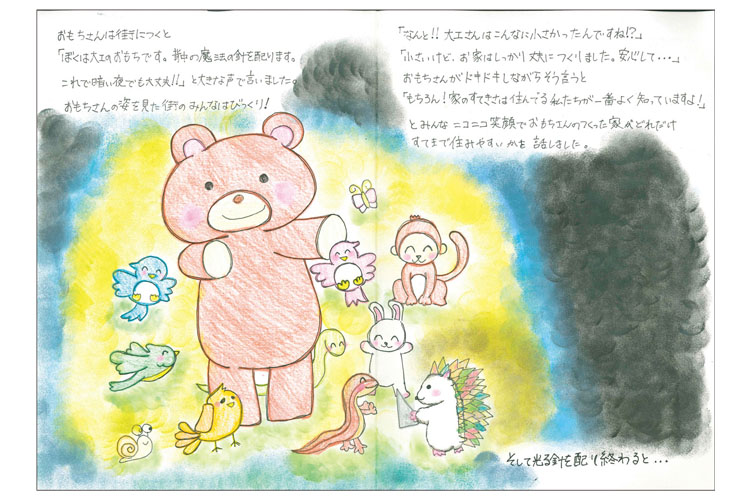 おもちさんは街につくと
「ぼくは大工のおもちです。背中の魔法の針を配ります。
これで暗い夜でも大丈夫!!」と大きな声で言いました。
おもちさんの姿を見た街のみんなはびっくり!
「なんと!! 大工さんはこんなに小さかったんですね!?」
「小さいけど、お家はしっかり丈夫につくりました。安心して・・・」
おもちさんがドキドキしながらそう言うと
「もちろん!家のすてきさは住んでる私たちが一番よく知っていますよ!」
とみんなニコニコ笑顔でおもちさんのつくった家がどれだけ
すてきで住みやすいかを話しました。
そして光る針を配り終わると・・・